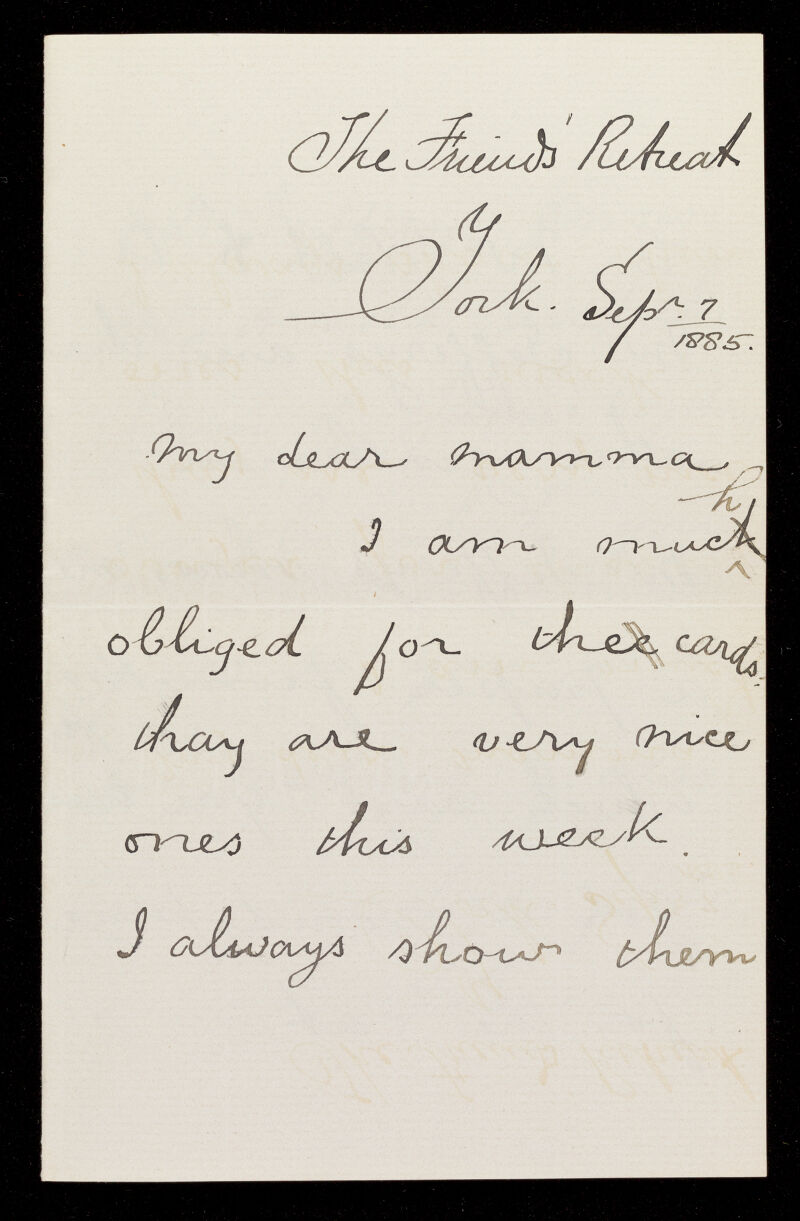 The Friends' Retreat
York. Sepr. 7
1885.
my dear mamma
I am much
obliged for the cards.
thay are very nice
ones this week.
I always show them